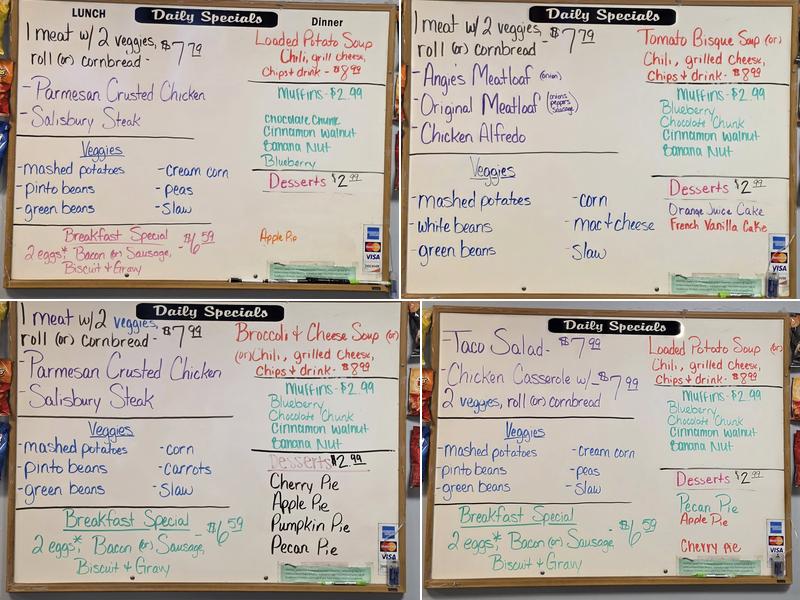 LUNCH
Daily Specials
Dinner
1 meat w/ 2 veggies,
roll (or) cornbread - $7.79
-Parmesan Crusted Chicken
-Salisbury Steak
Veggies
-mashed potatoes
-cream corn
-pinto beans
-peas
-green beans
-Slaw
Breakfast Special
2 eggs*, Bacon (or) Sausage, - $6.59
Biscuit & Gravy
Loaded Potato Soup (or)
Chili, grill cheese,
Chips & drink - $8.99
Muffins - $2.99
Chocolate Chunk
Cinnamon Walnut
Banana Nut
Blueberry
Desserts $2.99
Apple Pie
VISA
Daily Specials
1 meat w/ 2 veggies,
roll (or) cornbread - $7.79
-Angie's Meatloaf (onion)
-Original Meatloaf (onions peppers sausage)
-Chicken Alfredo
Veggies
-mashed potatoes
-corn
-white beans
-mac & cheese
-green beans
-Slaw
Tomato Bisque Soup (or)
Chili, grilled cheese,
Chips & drink - $8.99
Muffins - $2.99
Blueberry
Chocolate Chunk
Cinnamon Walnut
Banana Nut
Desserts $2.99
Orange Juice Cake
French Vanilla Cake
VISA
Daily Specials
1 meat w/ 2 veggies,
roll (or) cornbread - $7.99
-Parmesan Crusted Chicken
-Salisbury Steak
Veggies
-mashed potatoes
-corn
-pinto beans
-carrots
-green beans
-Slaw
Breakfast Special
2 eggs*, Bacon (or) Sausage, - $6.59
Biscuit & Gravy
Broccoli & Cheese Soup (or)
(or) Chili, grilled cheese,
Chips & drink - $8.99
Muffins - $2.99
Blueberry
Chocolate Chunk
Cinnamon Walnut
Banana Nut
Desserts $2.99
Cherry Pie
Apple Pie
Pumpkin Pie
Pecan Pie
VISA
Daily Specials
-Taco Salad - $7.99
-Chicken Casserole w/ - $7.99
2 veggies, roll (or) cornbread
Veggies
-mashed potatoes
-cream corn
-pinto beans
-peas
-green beans
-Slaw
Breakfast Special
2 eggs*, Bacon (or) Sausage, - $6.59
Biscuit & Gravy
Loaded Potato Soup (or)
Chili, grilled cheese,
Chips & drink - $8.99
Muffins - $2.99
Blueberry
Chocolate Chunk
Cinnamon Walnut
Banana Nut
Desserts $2.99
Pecan Pie
Apple Pie
Cherry Pie
VISA